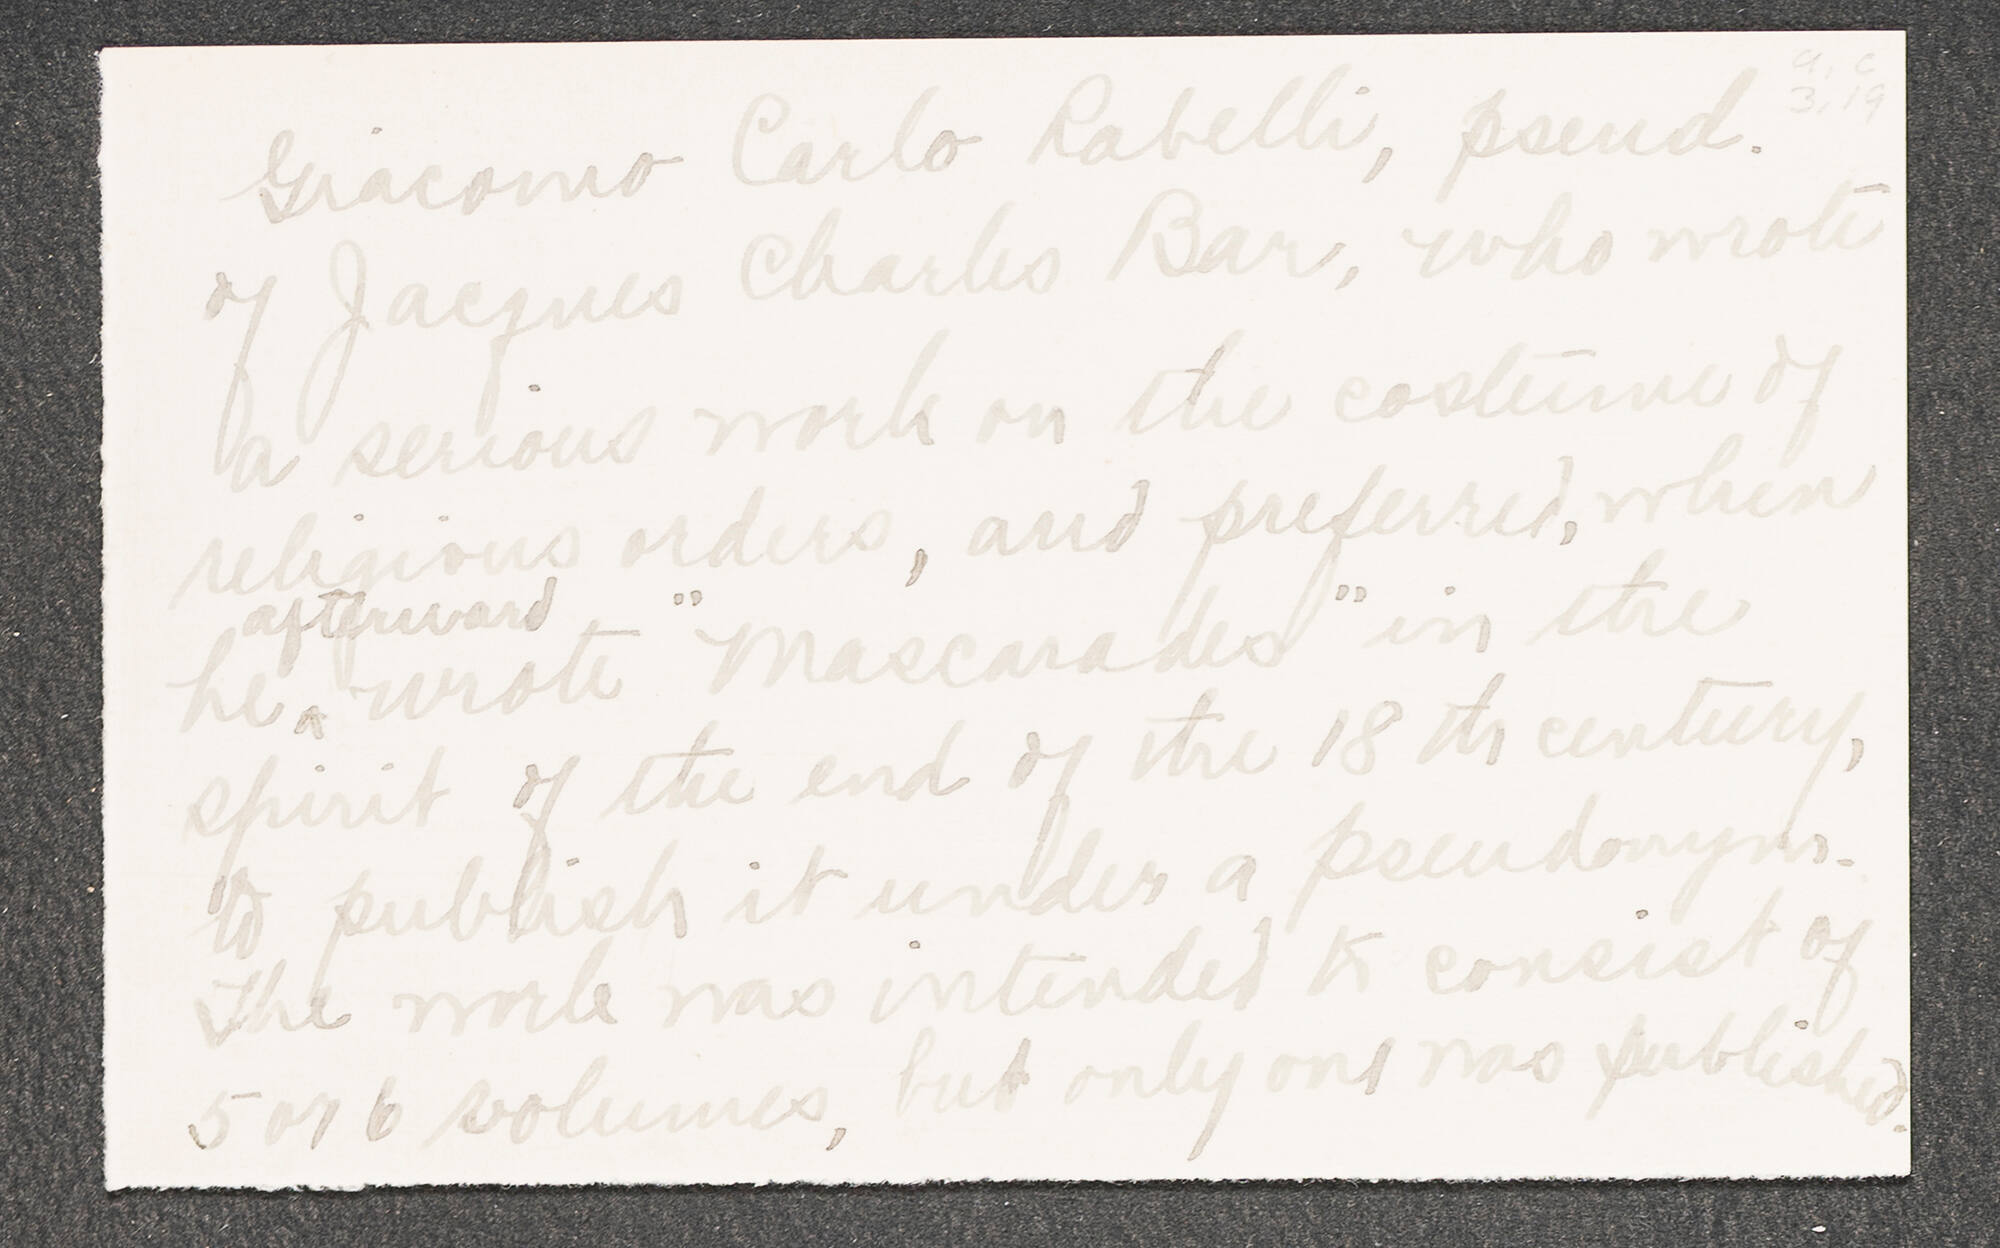 Giacomo Carlo Rabelli, pseud.
of Jacques Charles Bar, who wrote
a serious work on the costume of
religious orders, and preferred, when
afterward
he ^ wrote "Mascarades" in the
spirit of the end of the 18th century,
to publish it under a pseudonym.
The work was intended to consist of
5 or 6 volumes, but only one was published.